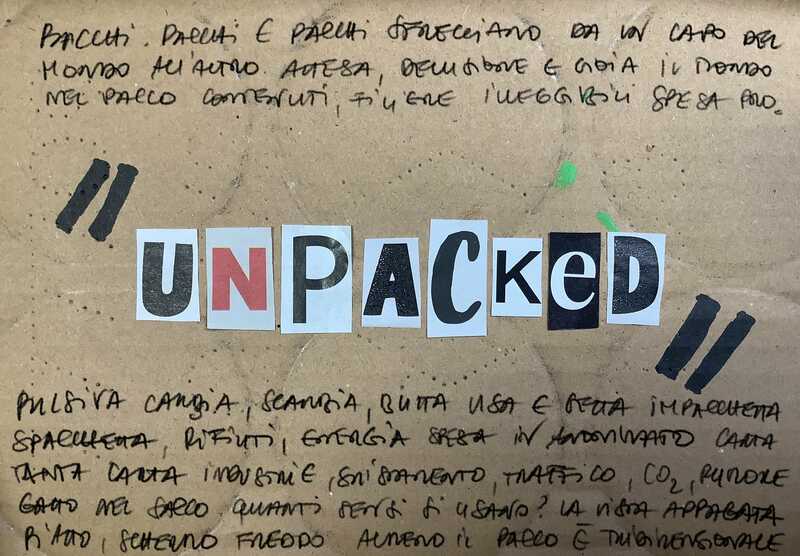 PACCHI. PACCHI E PACCHI SFRECCIANO DA UN CAPO DEL
MONDO ALL'ALTRO. ATTESA, DELUSIONE E GIOIA IL MONDO
NEL PACCO CONTENUTI, FILIERE ILLEGGIBILI SPESA
"UNPACKED"
PULSIVA CAMBIA, SCAMBIA, BUTTA USA E GETTA IMPACCHETTA
SPACCHETTA, RIFIUTI, ENERGIA SPESA IN CARTA
TANTA CARTA INDUSTRIE, SMISTAMENTO, TRAFFICO, CO2, RUMORE
GATTO NEL SACCO. QUANTI SENSI SI USANO? LA VISTA APPAGATA
PIATTO, SCHERMO FREDDO ALMENO IL PACCO È TRIDIMENSIONALE